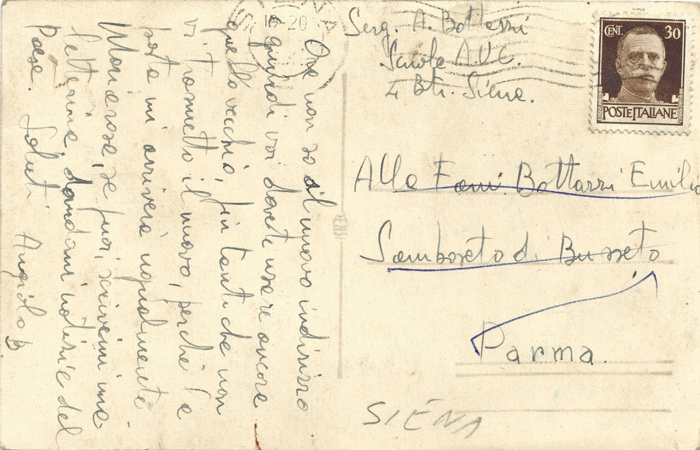 Ora non so il nuovo indirizzo
e quindi voi dovete usare ancora
quello vecchio, fin tanto che non
vi trometto il nuovo, perché la
posta mi arriverà ugualmente
Maria rosa, se puoi, scrivimi una
letterina, dandomi notizie del
Paese. Saluti Angiolo B
SIENA
18-20
Serg. A. Bottazzi
Scuola A.U.C.
4 Btr. Siena.
CENT. 30
POSTE ITALIANE
Alla Fam. Bottazzi Emilio
Samboseto di Busseto
Parma.
SIENA